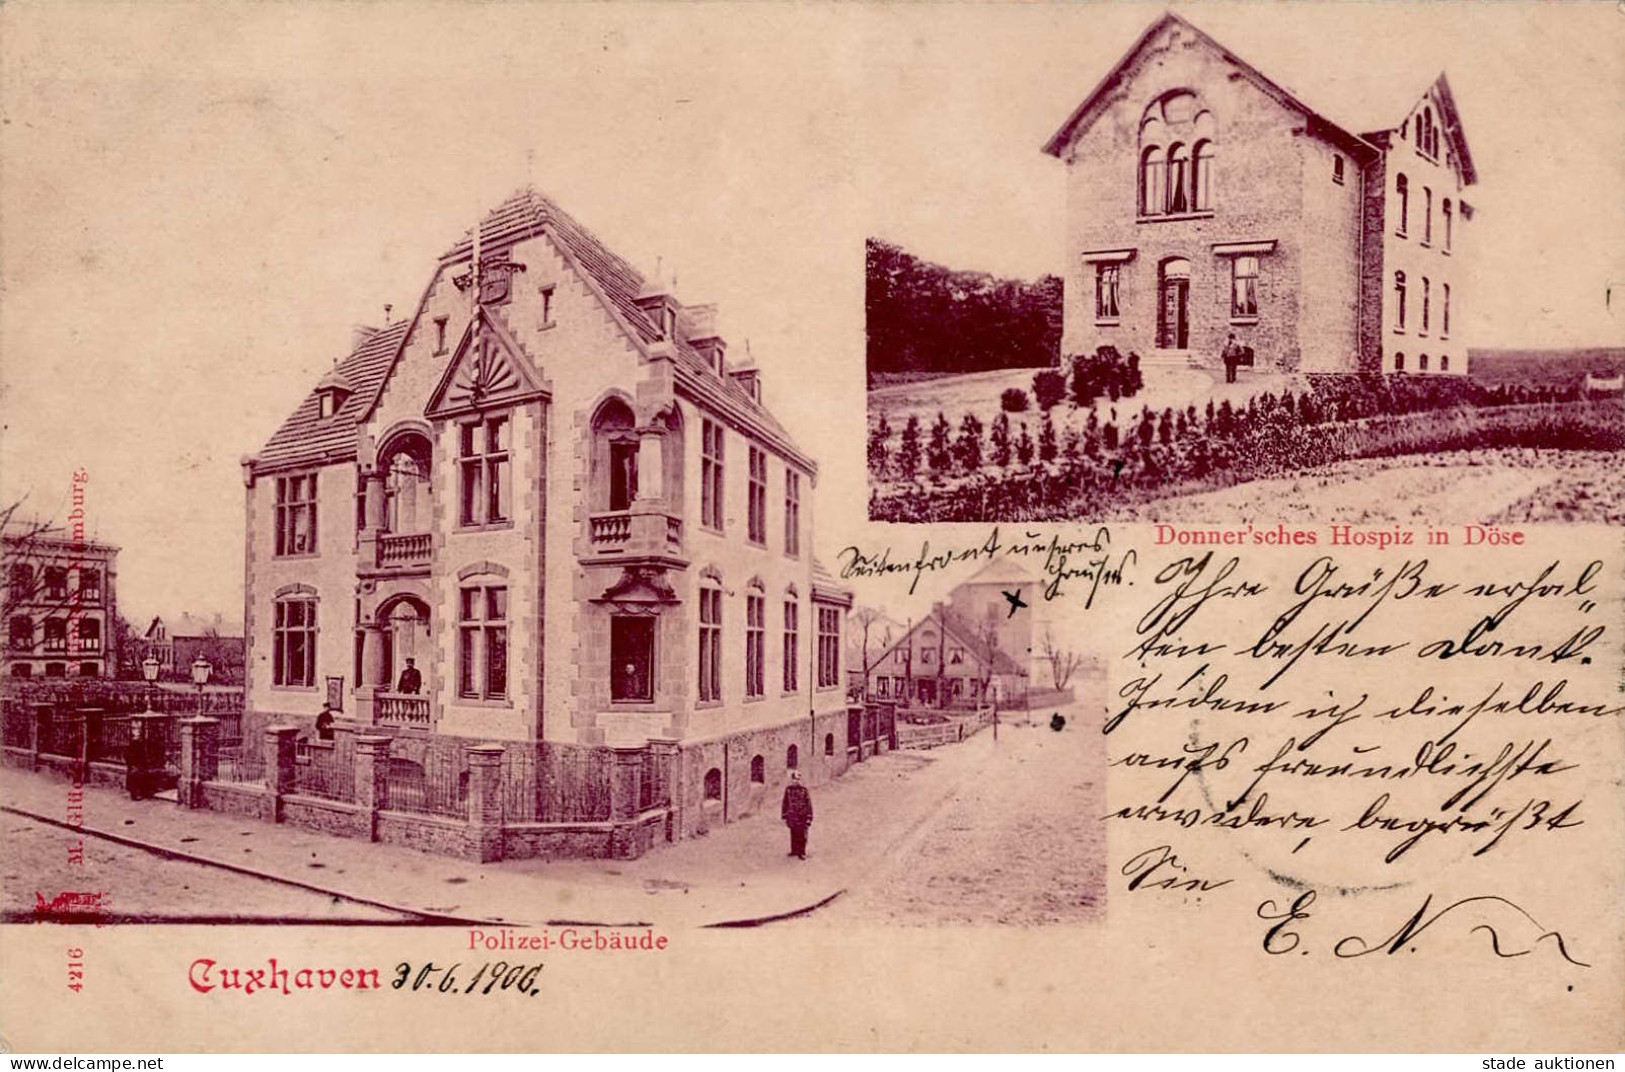 Donner'sches Hospiz in Döse
Seitenfront unseres
Hauses.
Ihre Grüße erhal„
ten besten Dank.
Indem ich dieselben
aufs freundlichste
erwidere, begrüßt
Sie
E. N.
Polizei-Gebäude
Cuxhaven 30.6.1900.
4216 M. Glückstadt & Münden, Hamburg.
www.delcampe.net
stade auktionen